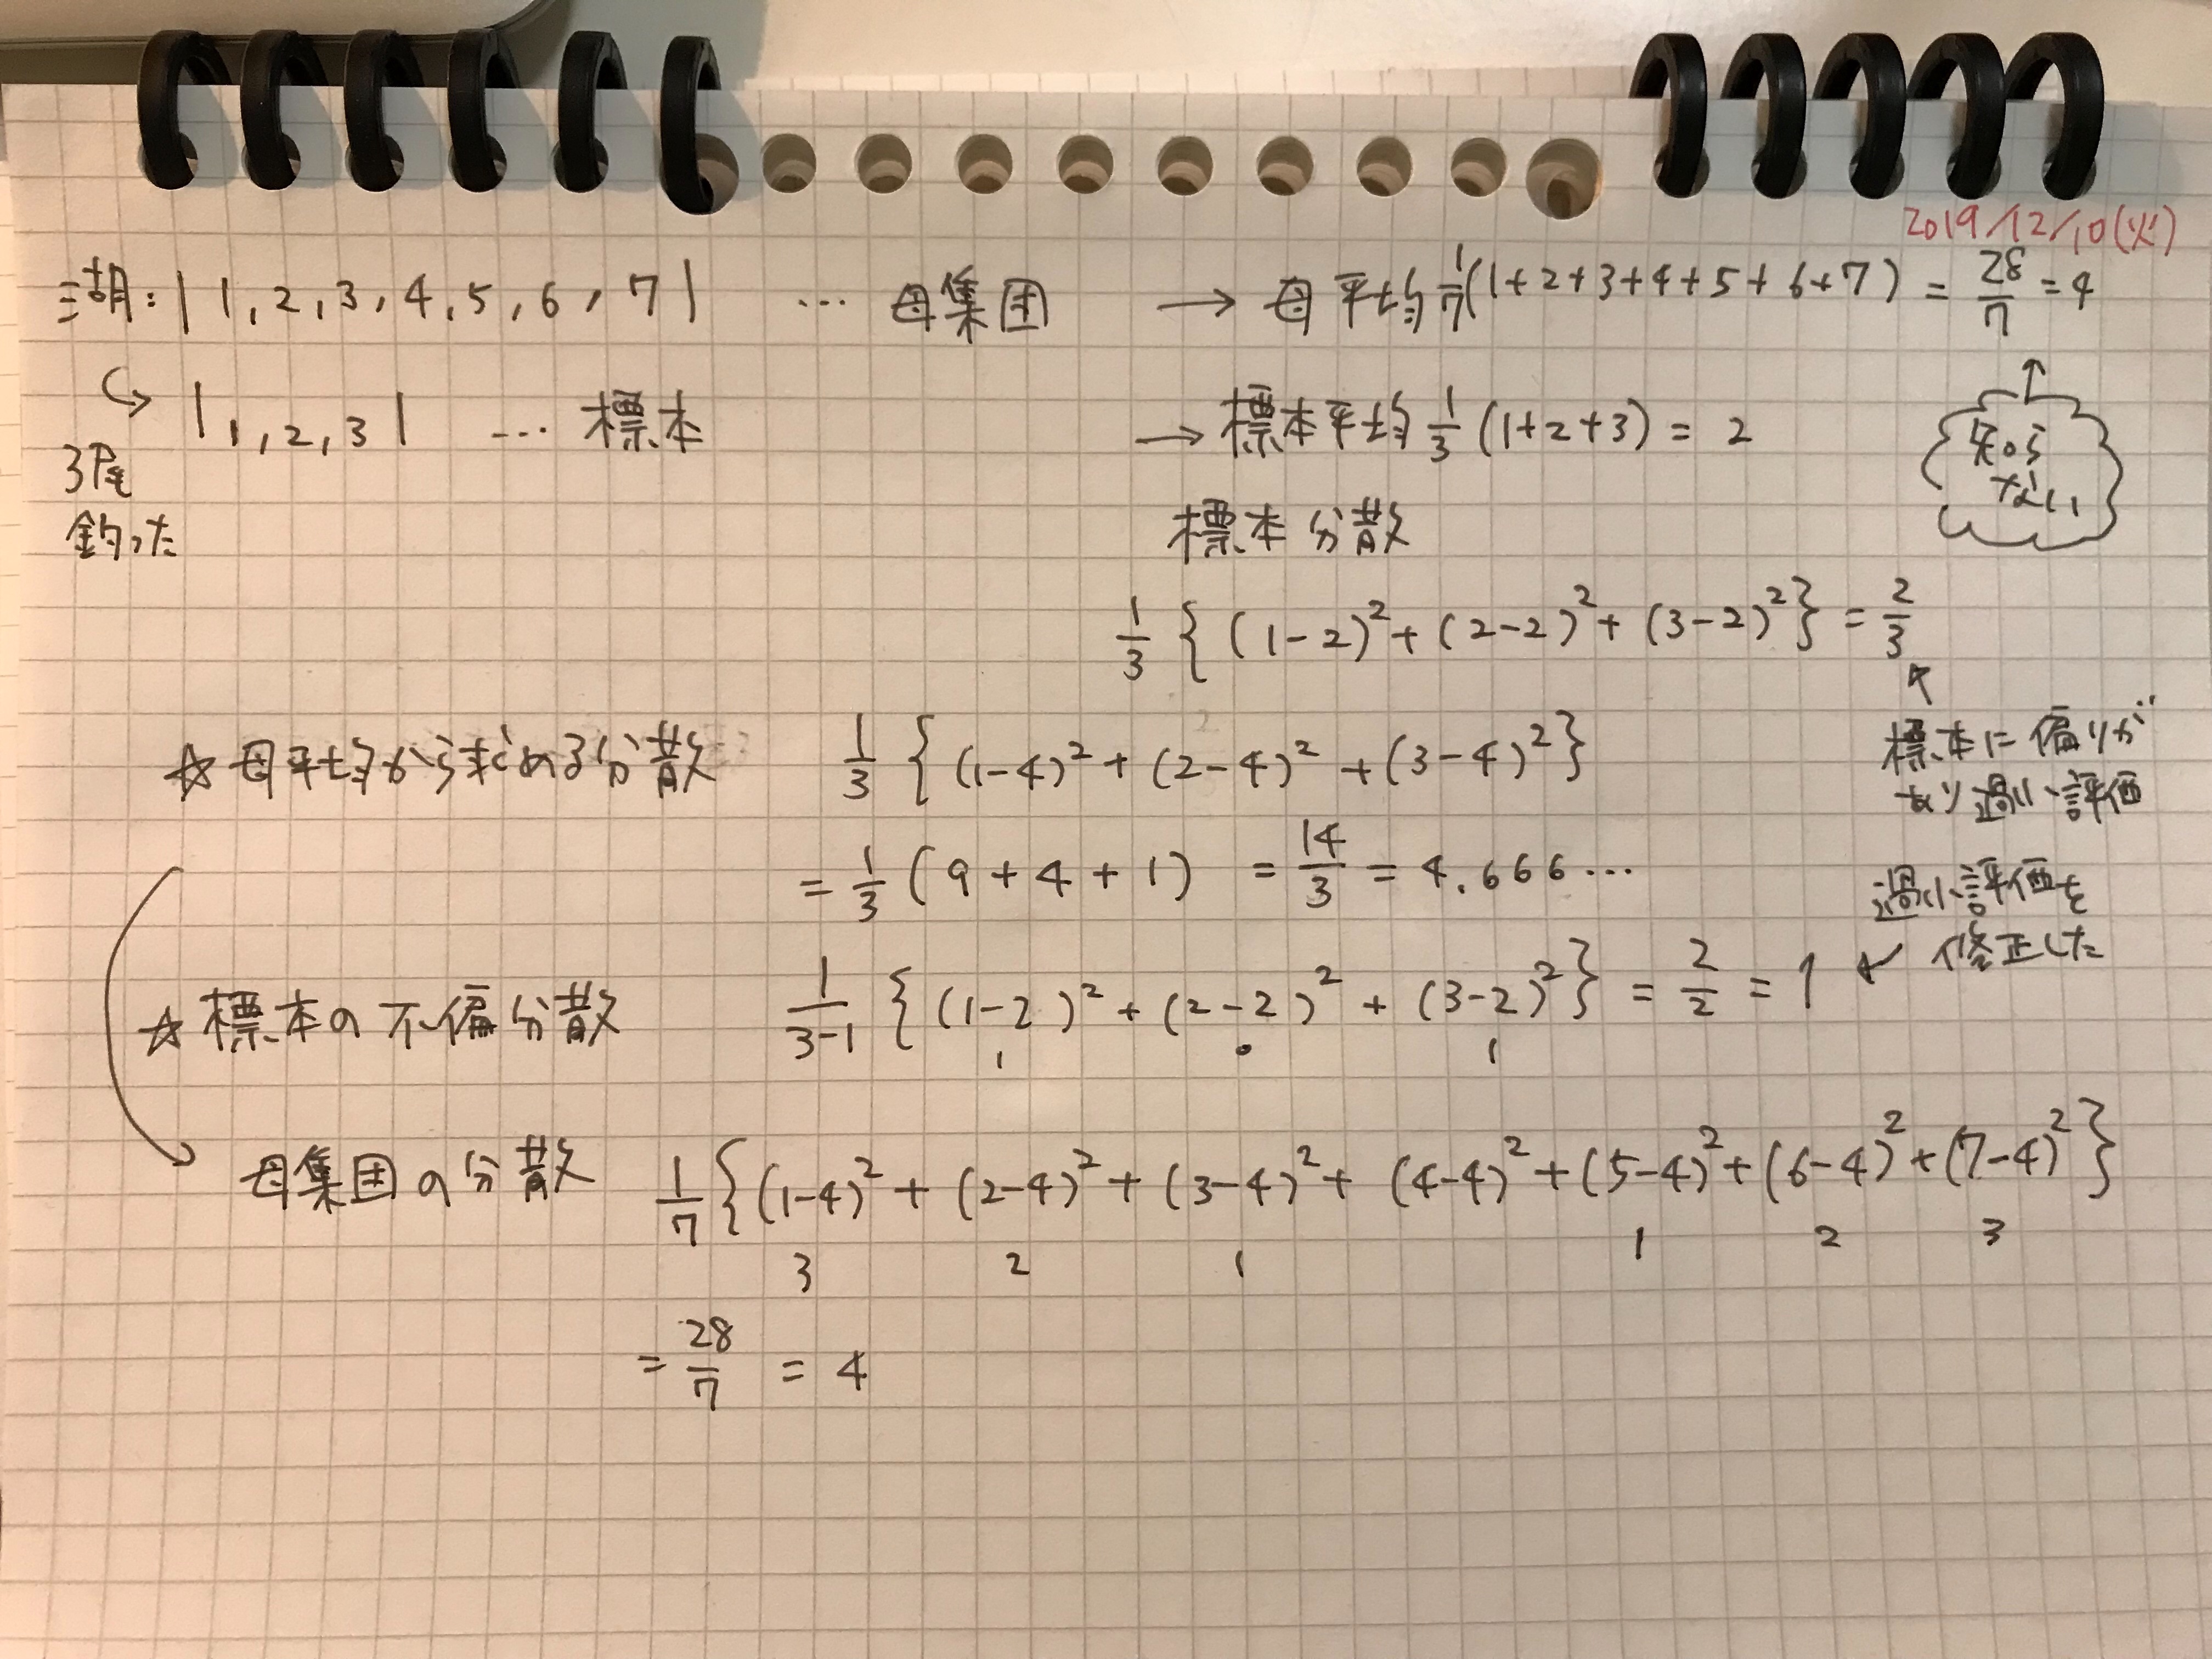 2019/12/10(火)
湖: | 1, 2, 3, 4, 5, 6, 7 | … 母集団 → 母平均 1/7(1+2+3+4+5+6+7) = 28/7 = 4
↑
知ら
ない
| 1, 2, 3 | … 標本 → 標本平均 1/3 (1+2+3) = 2
3尾
釣った
標本分散
1/3 { (1-2)² + (2-2)² + (3-2)² } = 2/3
標本に偏りが
あり過小評価
☆ 母平均から求める分散 1/3 { (1-4)² + (2-4)² + (3-4)² }
= 1/3 (9 + 4 + 1) = 14/3 = 4.666…
過小評価を
← 修正した
☆ 標本の不偏分散 1/(3-1) { (1-2)² + (2-2)² + (3-2)² } = 2/2 = 1
1 0 1
母集団の分散 1/7 { (1-4)² + (2-4)² + (3-4)² + (4-4)² + (5-4)² + (6-4)² + (7-4)² }
3 2 1 1 2 3
= 28/7 = 4